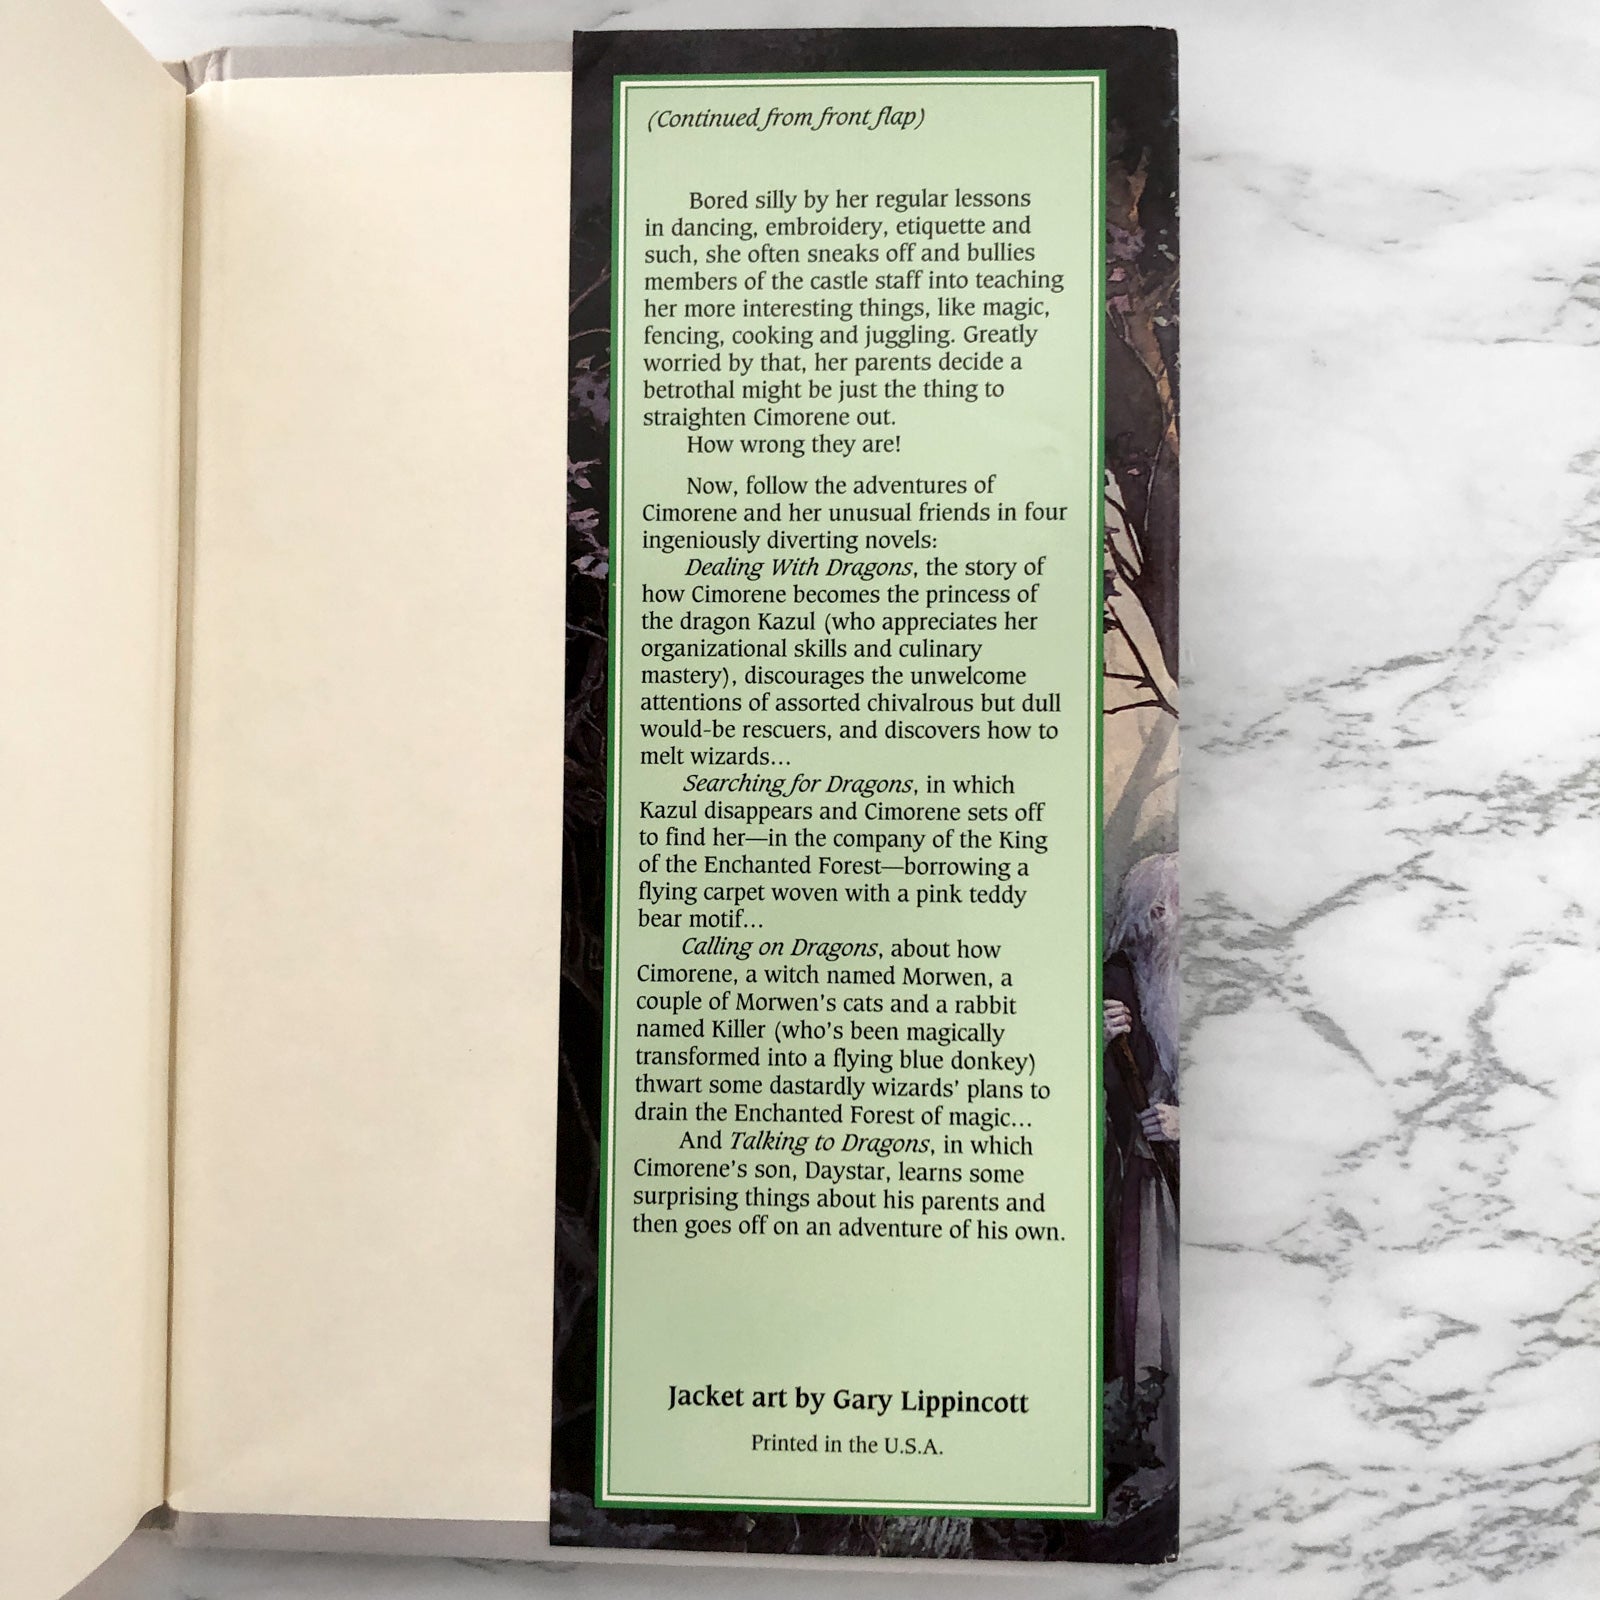 (Continued from front flap)
Bored silly by her regular lessons
in dancing, embroidery, etiquette and
such, she often sneaks off and bullies
members of the castle staff into teaching
her more interesting things, like magic,
fencing, cooking and juggling. Greatly
worried by that, her parents decide a
betrothal might be just the thing to
straighten Cimorene out.
How wrong they are!
Now, follow the adventures of
Cimorene and her unusual friends in four
ingeniously diverting novels:
Dealing With Dragons, the story of
how Cimorene becomes the princess of
the dragon Kazul (who appreciates her
organizational skills and culinary
mastery), discourages the unwelcome
attentions of assorted chivalrous but dull
would-be rescuers, and discovers how to
melt wizards...
Searching for Dragons, in which
Kazul disappears and Cimorene sets off
to find her—in the company of the King
of the Enchanted Forest—borrowing a
flying carpet woven with a pink teddy
bear motif...
Calling on Dragons, about how
Cimorene, a witch named Morwen, a
couple of Morwen's cats and a rabbit
named Killer (who's been magically
transformed into a flying blue donkey)
thwart some dastardly wizards' plans to
drain the Enchanted Forest of magic...
And Talking to Dragons, in which
Cimorene's son, Daystar, learns some
surprising things about his parents and
then goes off on an adventure of his own.
Jacket art by Gary Lippincott
Printed in the U.S.A.